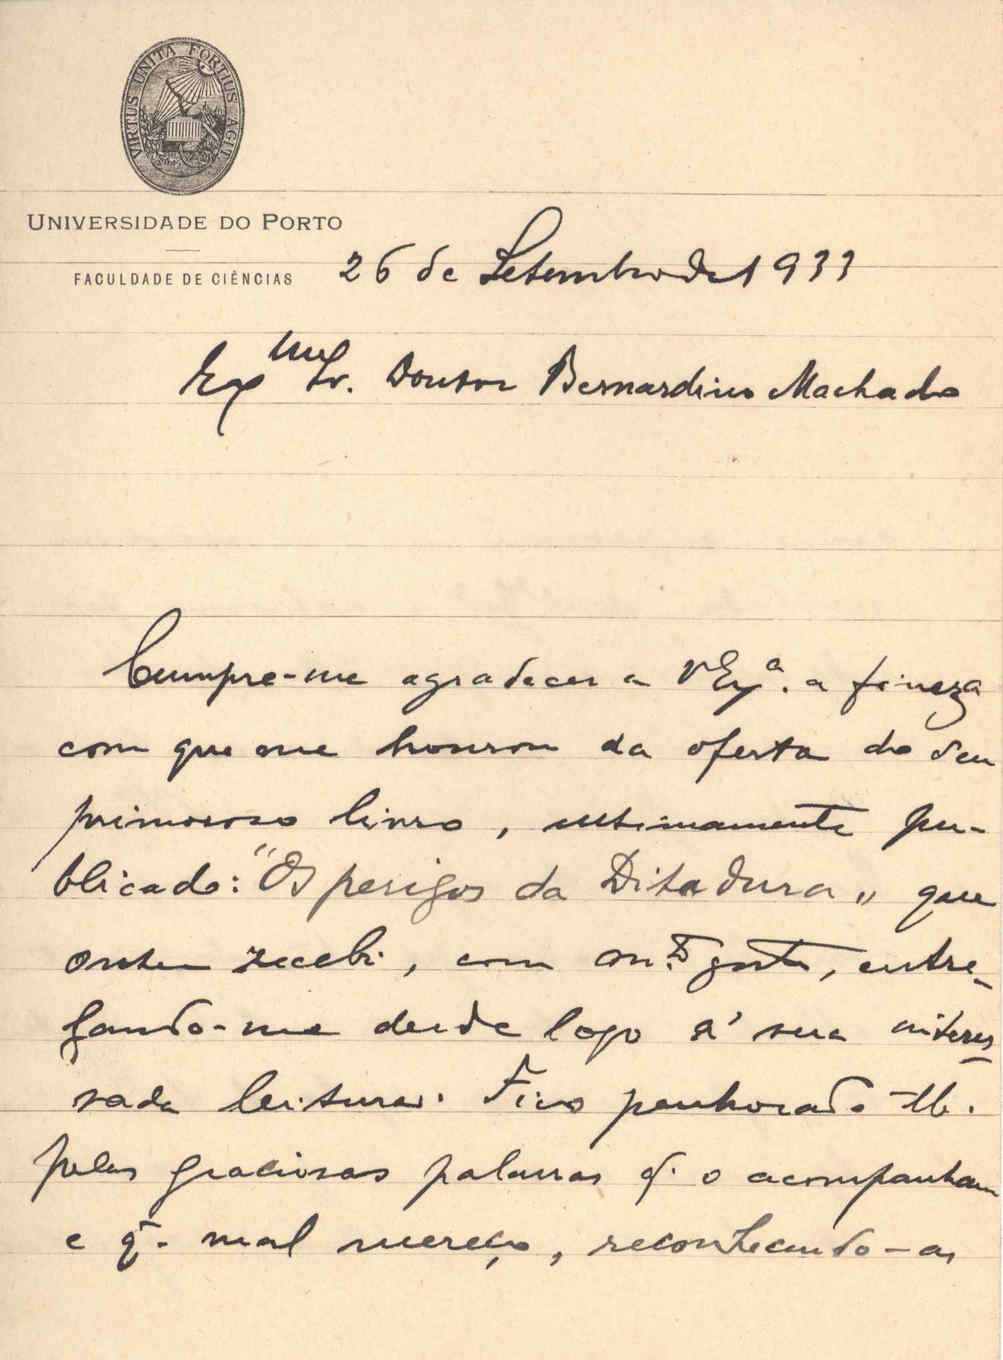 VIRTUS UNITA FORTIUS AGIT
UNIVERSIDADE DO PORTO
FACULDADE DE CIÊNCIAS
26 de Setembro de 1933
Exmo Sr. Doutor Bernardino Machado
Cumpre-me agradecer a V Exª. a fineza
com que me honrou da oferta do seu
primoroso livro, ultimamente pu-
blicado: "Os perigos da Ditadura" que
ontem recebi, com mto gosto, entre-
gando-me desde logo á sua interes-
sada leitura. Fico penhorado -lhe.
pelas graciosas palavras q. o acompanham
e q̃. mal mereço, reconhecendo-as